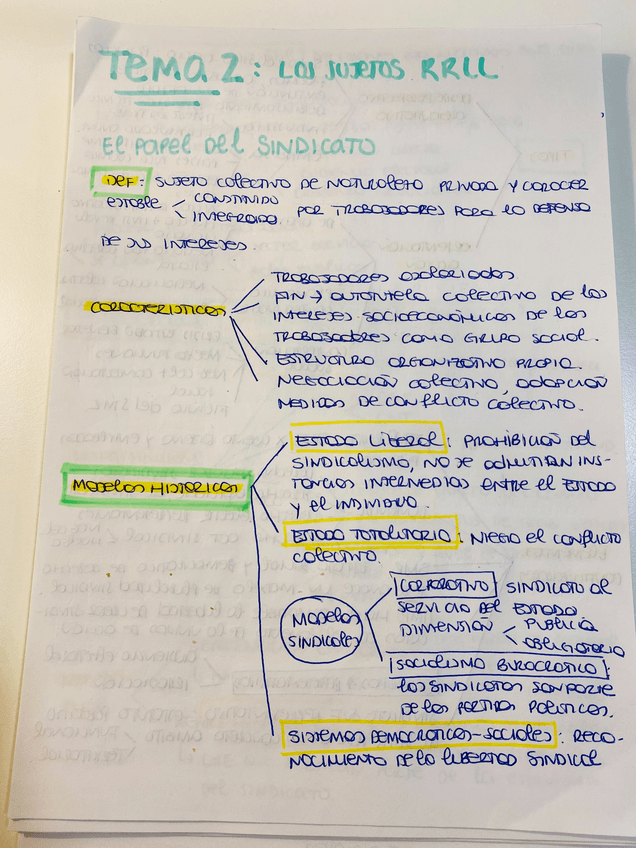 TEMA 2: LOS SUJETOS RRLL
EL PAPEL DEL SINDICATO
DEF: SUJETO COLECTIVO DE NATURALEZA PRIVADA Y CARACTER
ESTABLE CONSTITUIDO
INTEGRADO POR TRABAJADORES PARA LA DEFENSA
DE SUS INTERESES.
CARACTERISTICAS
TRABAJADORES ASALARIADOS
FIN → AUTOTUTELA COLECTIVA DE LOS
INTERESES SOCIOECONÓMICOS DE LOS
TRABAJADORES COMO GRUPO SOCIAL.
ESTRUCTURA ORGANIZATIVA PROPIA.
NEGOCIACIÓN COLECTIVA, ADOPCIÓN
MEDIDAS DE CONFLICTO COLECTIVO.
MODELOS HISTÓRICOS
ESTADO LIBERAL: PROHIBICIÓN DEL
SINDICALISMO, NO SE ADMITIAN INS-
TANCIAS INTERMEDIAS ENTRE EL ESTADO
Y EL INDIVIDUO.
ESTADO TOTALITARIO: NIEGA EL CONFLICTO
COLECTIVO.
MODELOS
SINDICALES
CORPORATIVO: SINDICATO AL
SERVICIO DEL ESTADO
DIMENSIÓN PUBLICA
OBLIGATORIA
SOCIALISMO BUROCRÁTICO:
LOS SINDICATOS SON PARTE
DE LOS PARTIDOS POLITICOS.
SISTEMAS DEMOCRÁTICOS-SOCIALES: RECO-
NOCIMIENTO DE LA LIBERTAD SINDICAL